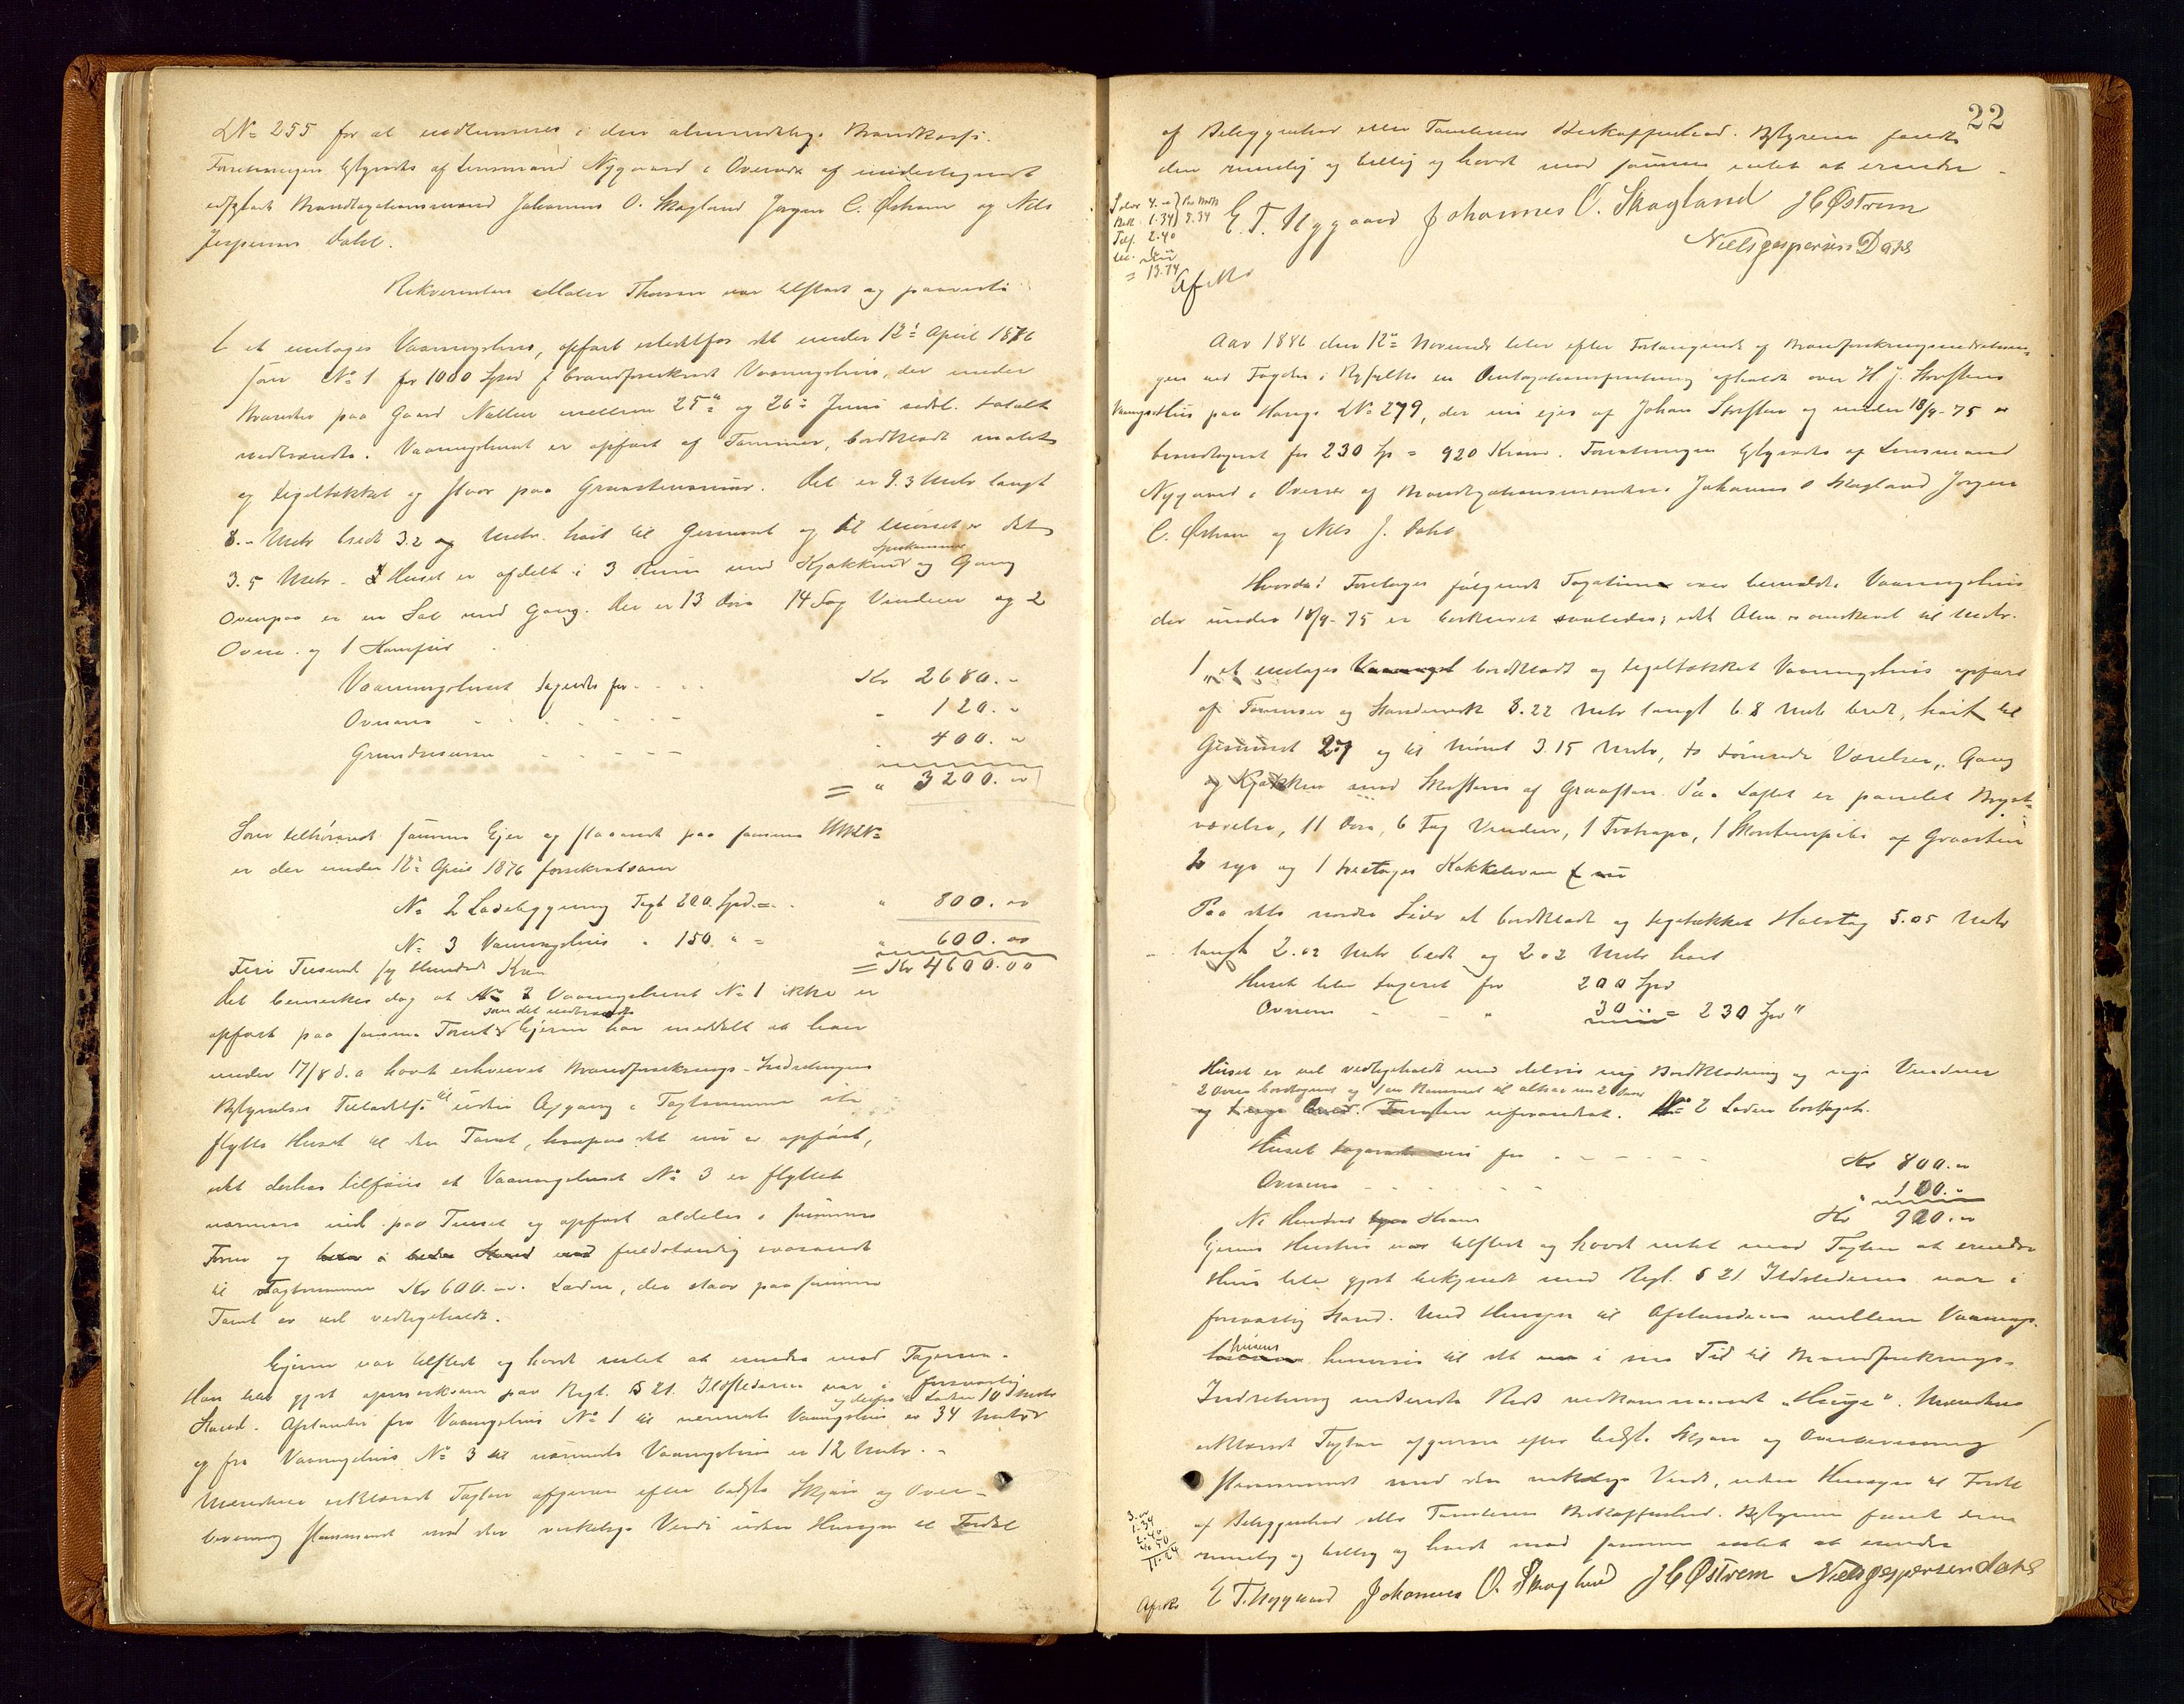 LN= 255 for at indlemmes i den almindelige Brandkasse.
Forretningen bestyredes af Lensmand Nygaard i Overvær af undertegnede
edfæstede Brandtaxationsmænd Johannes O. Skogland Jørgen C. Østrem og Nils
Jespersen Dahl.
Rekvirenten Maler Thorsen var tilstede og paaviste
1 et enetages Vaaningshus, opført istedetfor det under 12te April 1876
som No 1 for 1000 Spd brandforsikrede Vaaningshus, der under
Branden paa Gaard mellem 25de og 26de Juni sidstl. totalt
nedbrændte. Vaaningshuset er opført af Tømmer, bordklædt malet
og tegltækket og staar paa Graastensmur. Det er 9.3 Meter langt
8.- Meter bredt 3.2 Meter høit til Gesimset og til Mønset er det
3.5 Meter - Huset er afdelt i 3 Rum med Kjøkken Spiskammer og Gang
Ovenpaa er en Sal med Gang. Der er 13 Døre 14 Fag Vinduer og 2
Ovne og 1 Komfur
Vaaningshuset taxeredes for . . . . Kr 2680. -
Ovnene - - - - - - " 120. -
Grundmuren - - - - - " 400. "
= " 3200. "
Som tilhørende samme Eier og staaende paa samme
er der under 12te April 1876 forsikret som
No 2 Ladebygning Taxt 200 Spd. = . . " 800. oo
No 3 Vaaningshus " 150 " = " 600. oo
Fire Tusend sex Hundrede Kron = Kr 4600.00
Det bemærkes dog at Vaaningshuset No 1 ikke er
opført paa samme Tomt som det nedbrændte Eieren har meddelt at han
under 17/8 d.a havde erhvervet Brandforsikrings-Indretningens
Bestyrelses Tilladelse til uden Afgang i Taxtsummen at
flytte Huset til den Tomt, hvorpaa det nu er opført,
det derhos tilføies at Vaaningshuset No 3 er flyttet
nærmere ind paa Tunet og opført aldeles i samme
Form og fuldstændig svarende
til Taxtsummen Kr 600.oo. Laden, der staar paa samme
Tomt er vel vedligeholdt.
Eieren var tilstede og havde intet at erindre mod Taxten.
Han blev gjort opmærksom paa Regl. § 21. Ildstederne var i forsvarlig
Stand. Afstanden fra Vaaningshus No 1 til nærmeste Vaaningshus er 34 Meter og derfra til Laden 10 Meter
og fra Vaaningshus No 3 til nærmeste Vaaningshus er 12 Meter. -
Mændene erklærede Taxten afgiven efter bedste Skjøn og Over-
bevisning stemmende med den virkelige Værdi uden Hensyn til Fordel
22
af Beliggenhed eller Tomtens Beskaffenhed. Bestyreren fandt
den rimelig og billig og havde mod samme intet at erindre -
E. T. Nygaard Johannes O. Skagland JC Østrem
Niels Jespersen Dahl
1.34
2.40
= 13.74
Aar 1886 den 12te November blev efter Forlangende af Brandforsikringsindretnin-
gen ved Fogden i Ryfylke en Omtaxationsforretning afholdt over H J. Torstens
Vaaningshus paa Hauge LNo 279, der nu eies af Johan Torsten og under 18/9-75 er
brandtaxeret for 230 Sp = 920 Kroner. Forretningen bestyredes af Lensmand
Nygaard i Overvær af Brandtaxationsmændene Johannes O Skogland Jørgen
C. Østrem og Nils J. Dahl
Hvorda Foretoges følgende Taxation over bemeldte Vaaningshus
der under 18/9-75 er beskrevet saaledes; idet Alen er omskrevet til Meter.
1 et enetages bordklædt og tegltækket Vaaningshus opført
af Tømmer og Standerverk 8.22 Meter langt 6.8 Meter bredt, høit til
Gesimset 2.7 og til Mønet 3.15 Meter, to tømrede Værelser, Gang
og Kjøkken med Skorsten af Graasten. Paa Loftet er panelet Bryst-
værelse, 11 Døre, 6 Fag Vinduer, 1 Trætrappe, 1 Skorstenspibe af Graasten
og 1 toetages Kakkelovn
Paa dets nordre Side et bordklædt og tegltækket Halvtag 5.05 Meter
langt 2.02 Meter bredt og 2.02 Meter høit
Huset blev taxeret for 200 Spd
Ovnene - - " 30 = 230 Spd "
Huset er vel vedligeholdt med delvis ny Bordklædning og nye Vinduer
2 Ovne borttagne og 1 ny kommet til altsaa nu 2 Ovne
uforandret. No 2 Laden borttaget.
Huset for . - - - - - Kr 800.oo
Ovnene - - - - - - " 100.-
Ni Hundrede Kroner Kr 900.oo
Eierens Hustru var tilstede og havde intet mod Taxten at erindre
Hun blev gjort bekjendt med Regl. § 21. Ildstederne var i
forsvarlig Stand. Med Hensyn til Afstanden mellem Vaanings-
husene henvises til det i sin Tid til Brandforsikrings-
Indretning indsendte Rids vedkommende "Hauge". Mændene
erklærede Taxten afgiven efter bedste Skjøn og Overbevisning
stemmende med den virkelige Værdi, uden Hensyn til Fordel
af Beliggenhed eller Tomtens Beskaffenhed. Bestyreren fandt den
rimelig og billig og havde mod samme intet at erindre
E T. Nygaard Johannes O. Skagland JC Østrem Niels Jespersen Dahl